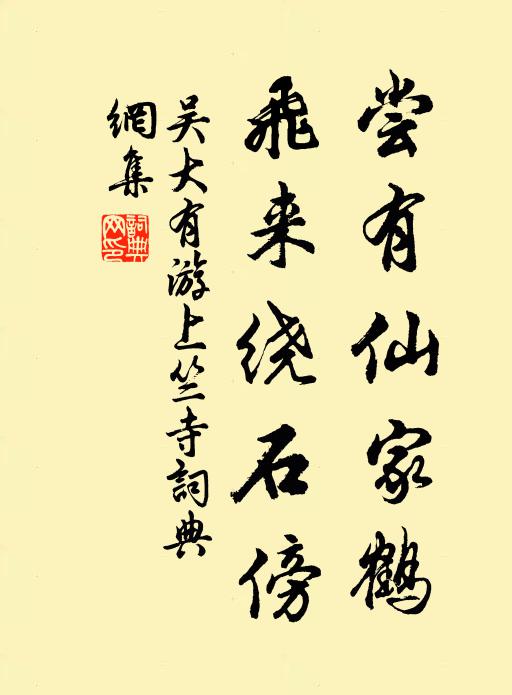 尝有仙家鹤
飞来绕石傍
吴大有游上竺寺詞典
網集
詞典
网印